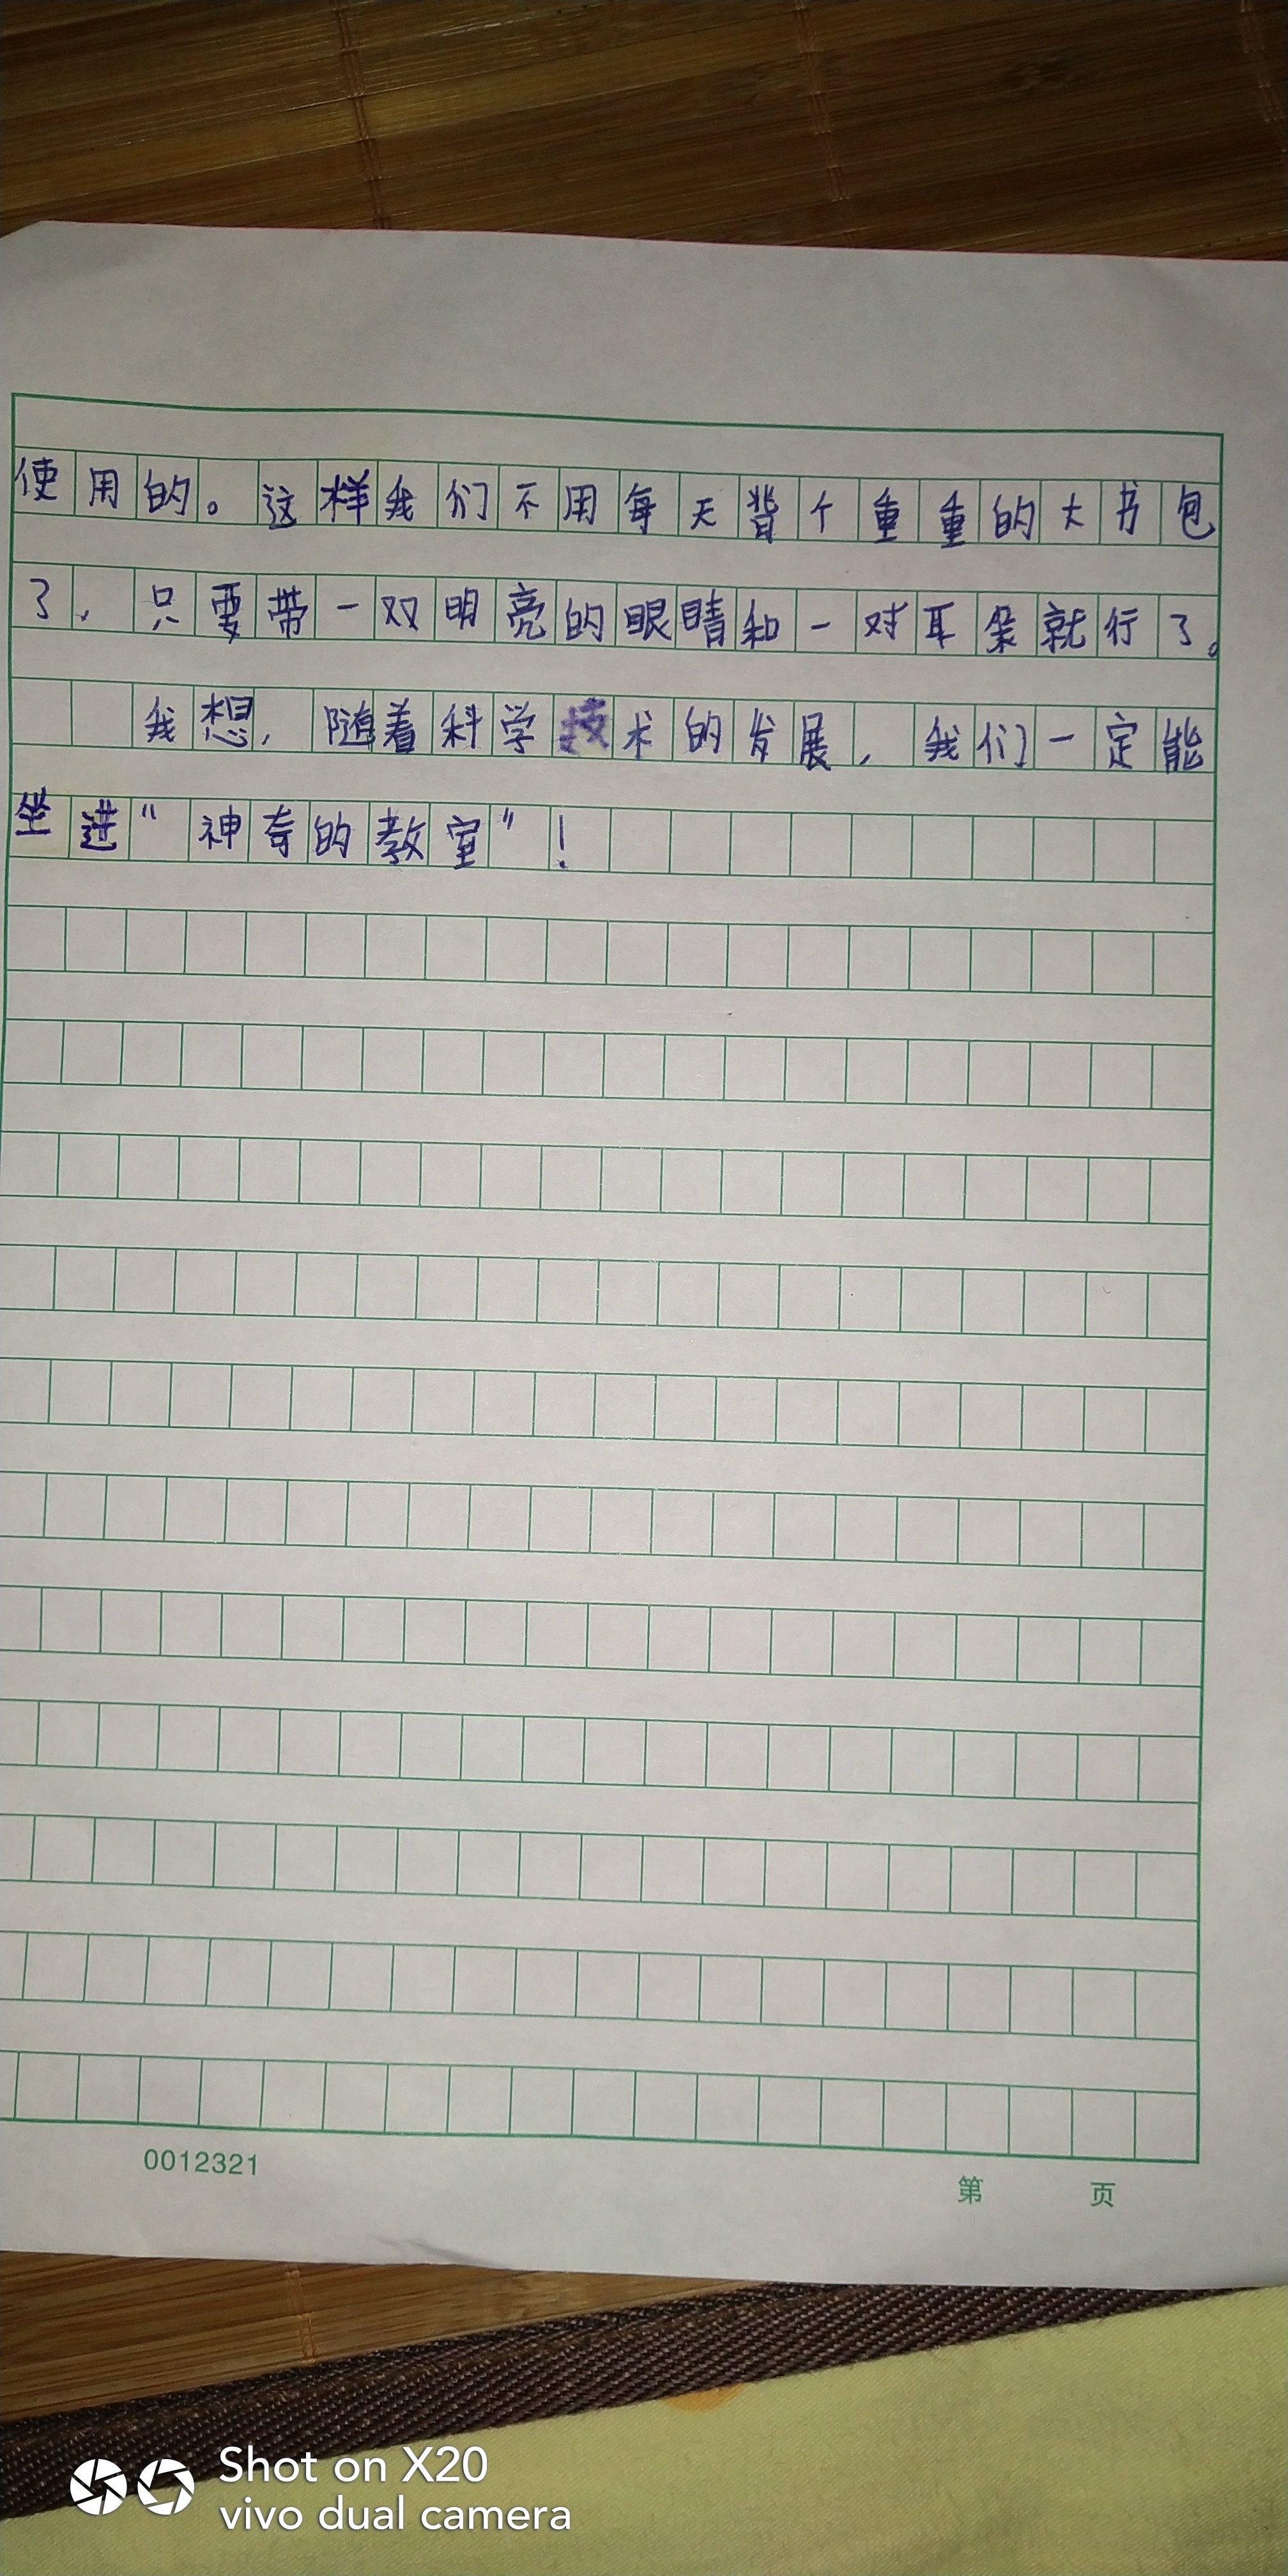 使用的。这样我们不用每天背个重重的大书包
了，只要带一双明亮的眼睛和一对耳朵就行了。
我想，随着科学技术的发展，我们一定能
坐进“神奇的教室”！
0012321
第 页
Shot on X20
vivo dual camera